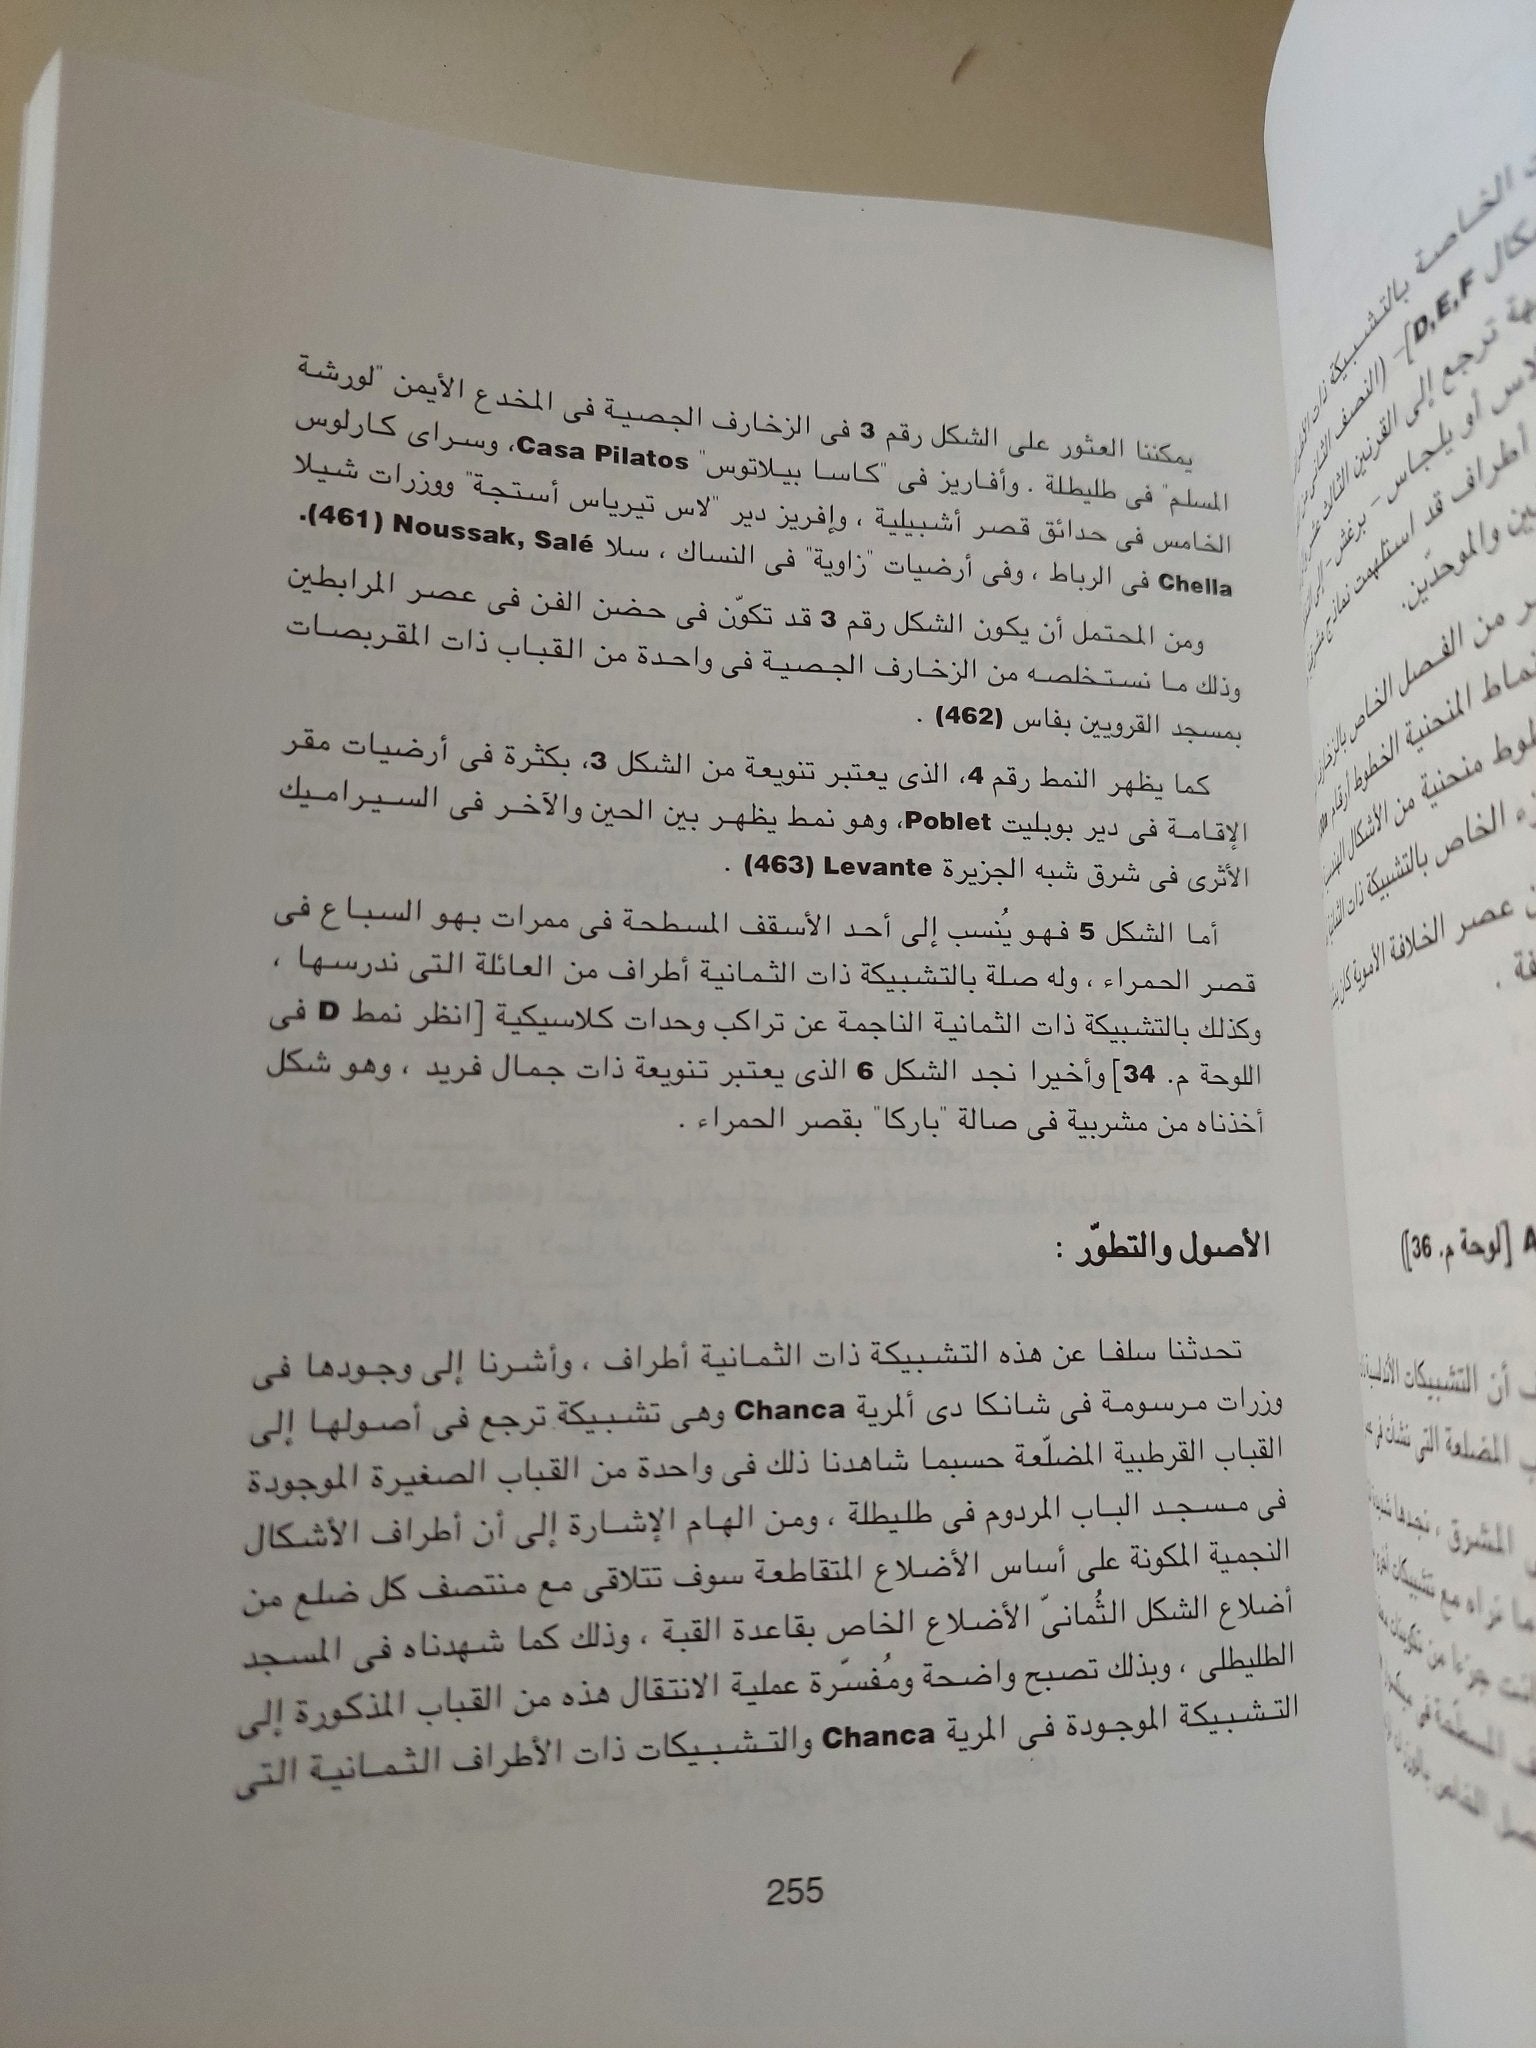 يمكننا العثور على الشكل رقم 3 فى الزخارف الجصية فى المخدع الأيمن "لورشة
المسلم" فى طليطلة . وأفاريز فى "كاسا بيلاتوس" Casa Pilatos، وسراى كارلوس
الخامس فى حدائق قصر أشبيلية ، وإفريز دير "لاس تيرياس أستجة" ووزرات شيلا
Chella فى الرباط ، وفى أرضيات "زاوية" فى النساك ، سلا Noussak, Salé (461).
ومن المحتمل أن يكون الشكل رقم 3 قد تكوّن فى حضن الفن فى عصر المرابطين
وذلك ما نستخلصه من الزخارف الجصية فى واحدة من القباب ذات المقربصات
بمسجد القرويين بفاس (462) .
كما يظهر النمط رقم 4، الذى يعتبر تنويعة من الشكل 3، بكثرة فى أرضيات مقر
الإقامة فى دير بوبليت Poblet، وهو نمط يظهر بين الحين والآخر فى السيراميك
الأثرى فى شرق شبه الجزيرة Levante (463) .
أما الشكل 5 فهو يُنسب إلى أحد الأسقف المسطحة فى ممرات بهو السباع فى
قصر الحمراء ، وله صلة بالتشبيكة ذات الثمانية أطراف من العائلة التى ندرسها ،
وكذلك بالتشبيكة ذات الثمانية الناجمة عن تراكب وحدات كلاسيكية [انظر نمط D فى
اللوحة م. 34] وأخيرا نجد الشكل 6 الذى يعتبر تنويعة ذات جمال فريد ، وهو شكل
أخذناه من مشربية فى صالة "باركا" بقصر الحمراء .
الأصول والتطوّر :
تحدثنا سلفا عن هذه التشبيكة ذات الثمانية أطراف ، وأشرنا إلى وجودها فى
وزرات مرسومة فى شانكا دى ألمرية Chanca وهى تشبيكة ترجع فى أصولها إلى
القباب القرطبية المضلّعة حسبما شاهدنا ذلك فى واحدة من القباب الصغيرة الموجودة
فى مسجد الباب المردوم فى طليطلة ، ومن الهام الإشارة إلى أن أطراف الأشكال
النجمية المكونة على أساس الأضلاع المتقاطعة سوف تتلاقى مع منتصف كل ضلع من
أضلاع الشكل الثُمانىّ الأضلاع الخاص بقاعدة القبة ، وذلك كما شهدناه فى المسجد
الطليطلى ، وبذلك تصبح واضحة ومُفسّرة عملية الانتقال هذه من القباب المذكورة إلى
التشبيكة الموجودة فى المرية Chanca والتشبيكات ذات الأطراف الثمانية التى
255
الخاصة بالتشبيكة ذات
D,E,F]- (النصف الثانى من
ترجع إلى القرنين الثالث عشر
أو يلجاس - برغش - إلى
أطراف قد استلهمت نماذج
والموحدّين.
من الفصل الخاص بالزخارف
المنحنية الخطوط أرقام
منحنية من الأشكال
الخاص بالتشبيكة ذات
عصر الخلافة الأموية كان
A [لوحة م. 36])
أن التشبيكات الأندلسية
المضلعة التى نشأت فى
المشرق ، نجدها
نراه مع تشبيكات
جزءا من
المسطحة فى